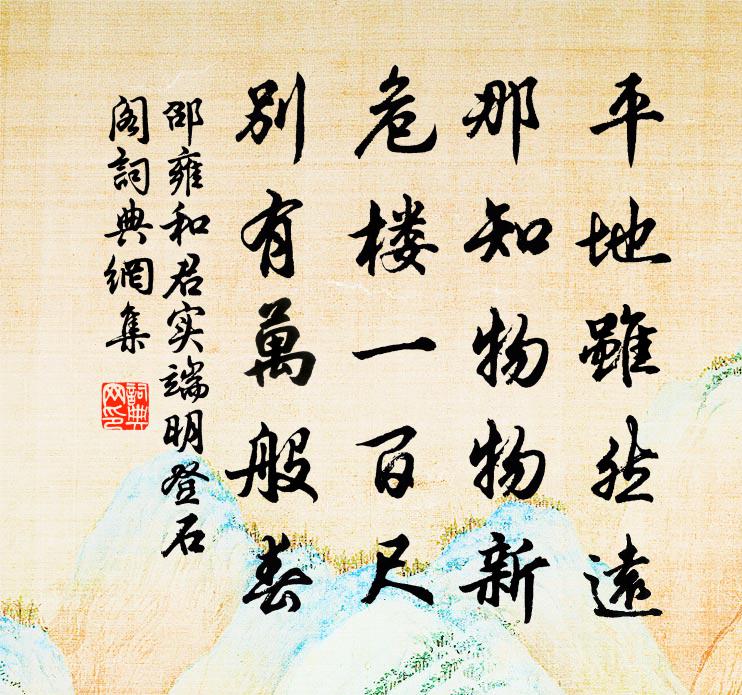 平地雖然遠
那知物物新
危楼一百尺
別有萬般春
邵雍和君实端明登石
阁詞典網集
詞典网印